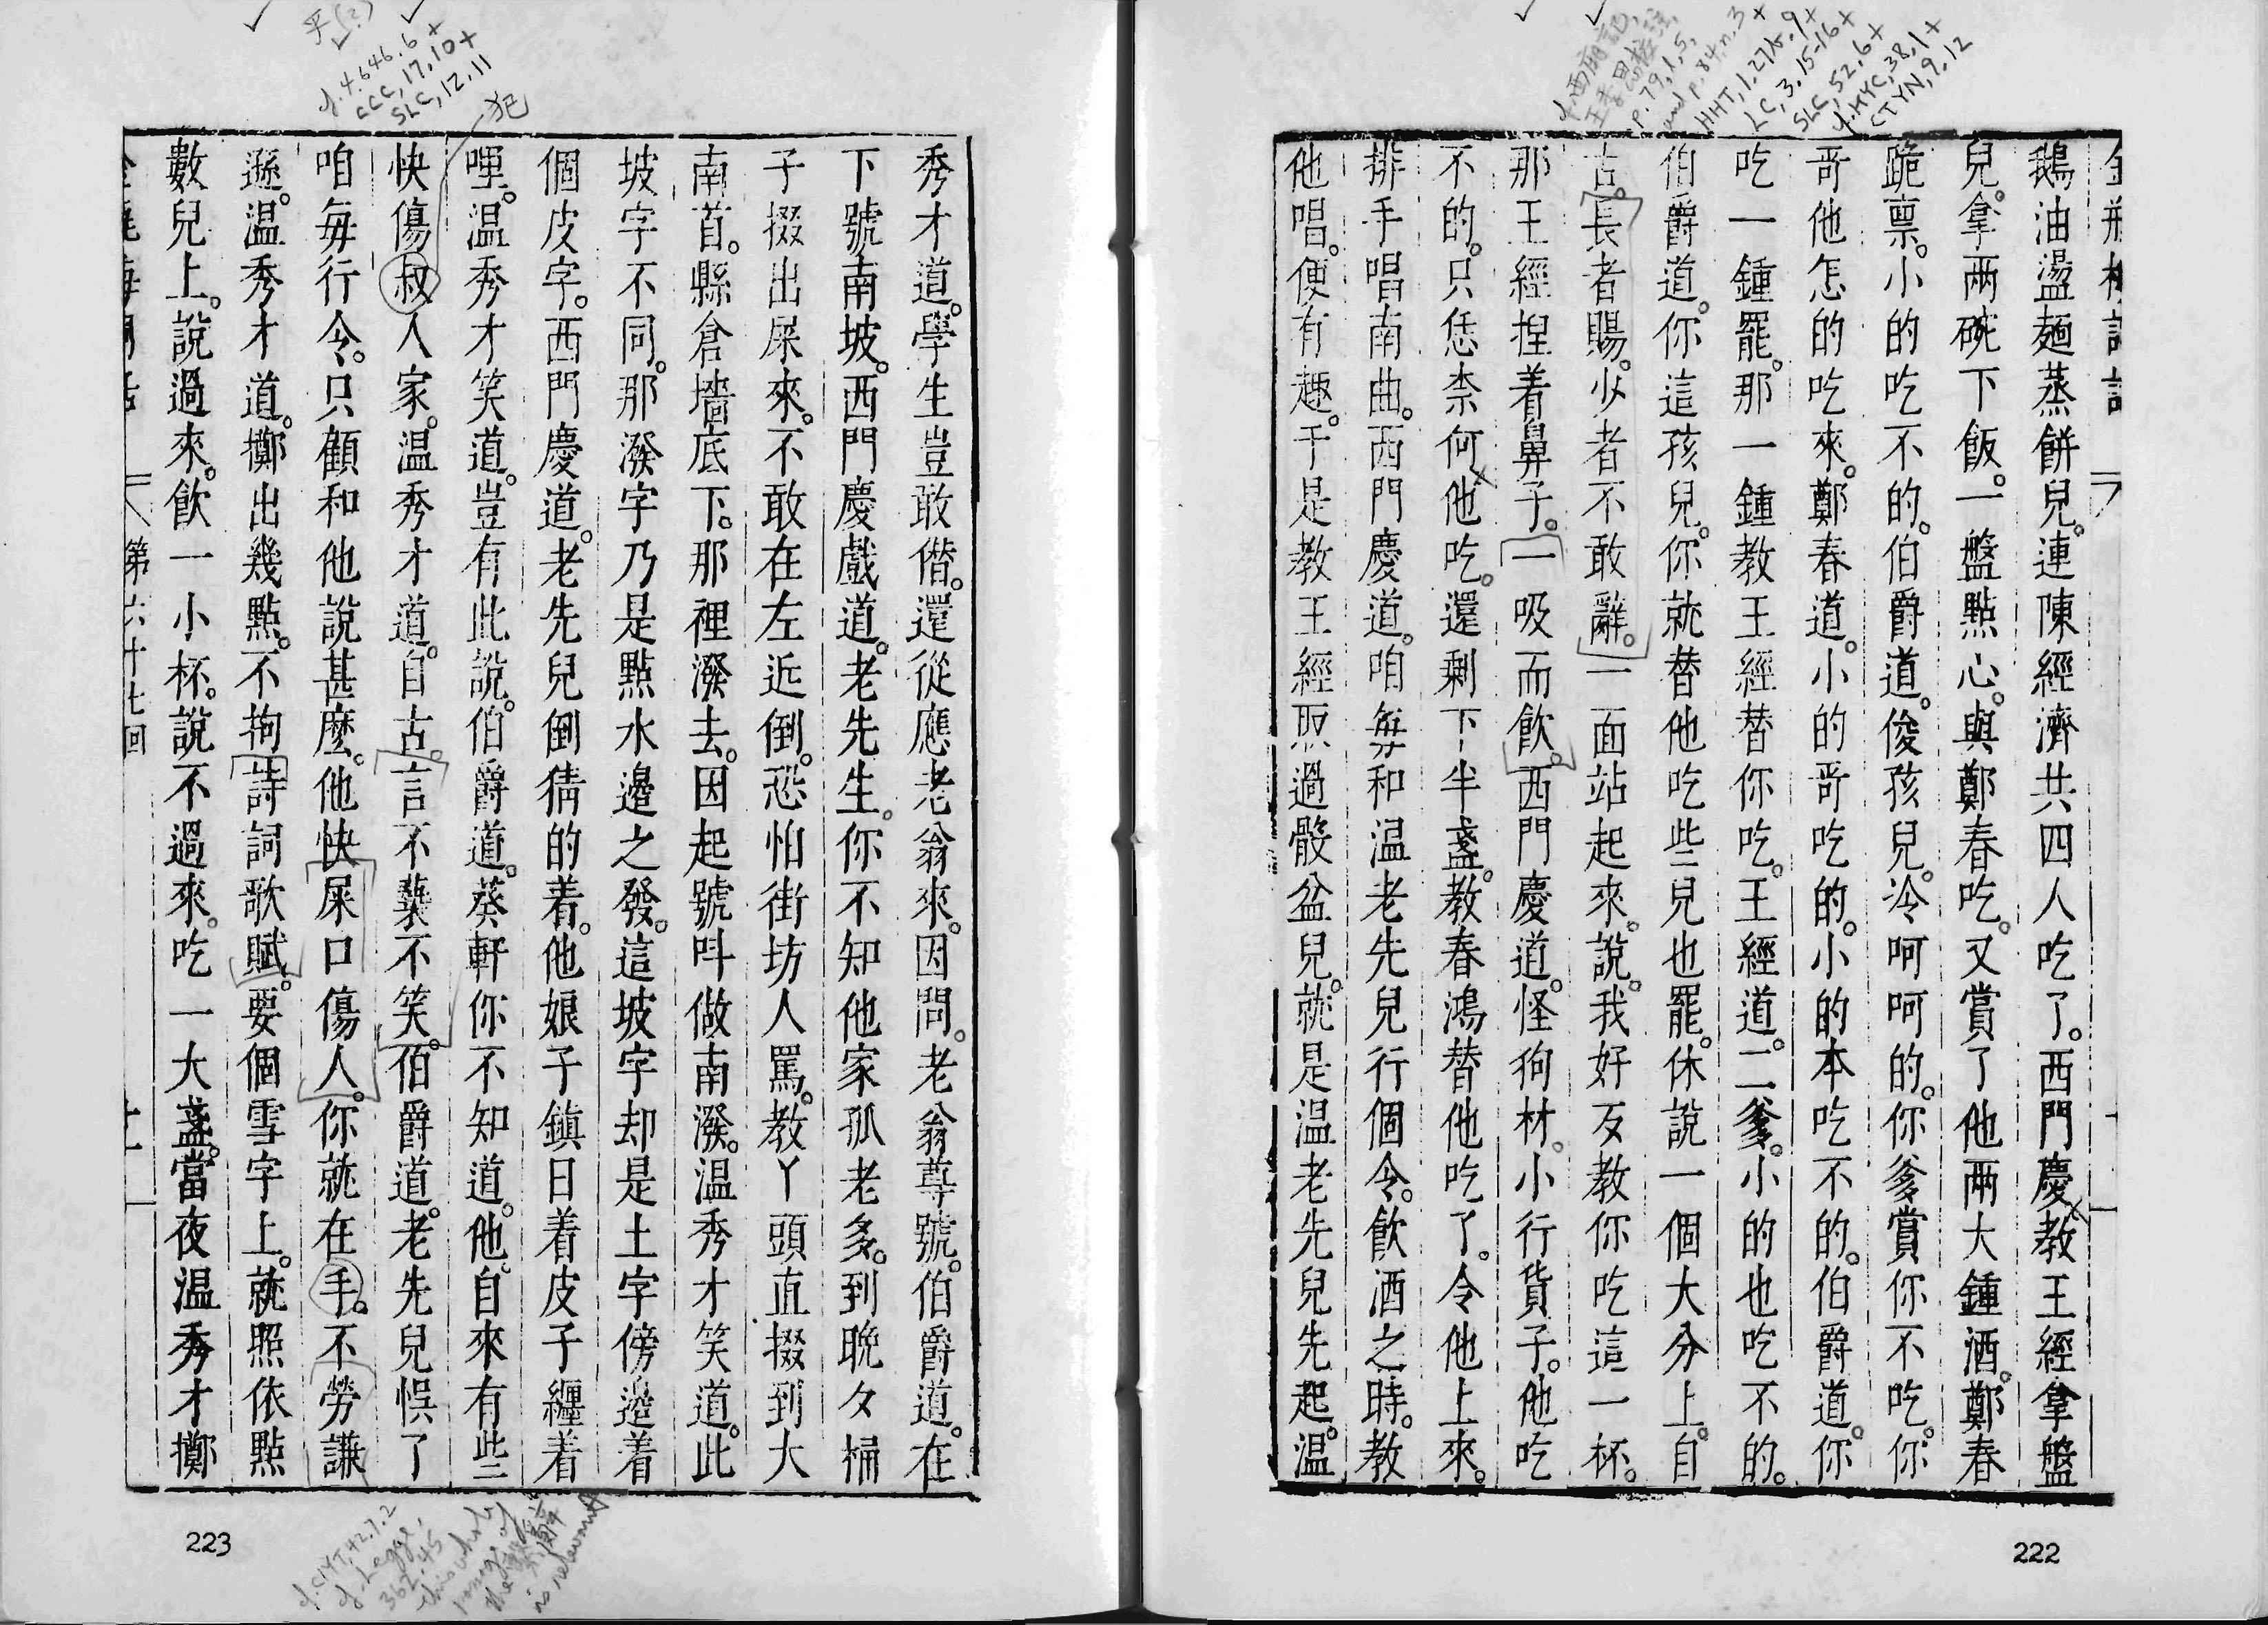 鵝油盪麵蒸餅兒。連陳經濟共四人吃了。西門慶教王經拿盤
兒。拿兩碗下飯。一盤點心。與鄭春吃。又賞了他兩大鍾酒。鄭春
跪禀。小的吃不的。伯爵道。俊孩兒。冷呵呵的。你爹賞你不吃。你
哥他怎的吃來。鄭春道。小的哥吃的。小的本吃不的。伯爵道。你
吃一鍾罷。那一鍾教王經替你吃。王經道。二爹。小的也吃不的。
伯爵道。你這孩兒。你就替他吃些兒也罷。休說一個大分上。自
古。長者賜。少者不敢辭。一面站起來。說。我好歹教你吃這一杯。
那王經捏着鼻子。一吸而飲。西門慶道。怪狗材。小行貨子。他吃
不的。只恁柰何他吃。還剩下半盞。教春鴻替他吃了。令他上來。
排手唱南曲。西門慶道。咱每和温老先兒行個令。飲酒之時。教
他唱。便有趣。于是教王經取過骰盆兒。就是温老先兒先起。温
222
秀才道。學生豈敢僭。還從應老翁來。因問。老翁尊號。伯爵道。在
下號南坡。西門慶戲道。老先生。你不知他家孤老多。到晚夕桶
子掇出屎來。不敢在左近倒。恐怕街坊人罵。教丫頭直掇到大
南首。縣倉墻底下。那裡潑去。因起號呌做南潑。温秀才笑道。此
坡字不同。那潑字乃是點水邊之發。這坡字却是土字傍邊着
個皮字。西門慶道。老先兒倒猜的着。他娘子鎮日着皮子纏着
哩。温秀才笑道。豈有此說。伯爵道。葵軒你不知道。他自來有些
快傷叔人家。温秀才道。自古。言不䙝不笑。伯爵道。老先兒悞了
咱每行令。只顧和他說甚麼。他快屎口傷人。你就在手。不勞謙
遜。温秀才道。擲出幾點。不拘詩詞歌賦。要個雪字上。就照依點
數兒上。說過來。飲一小杯。說不過來。吃一大盞。當夜温秀才擲
第六十七回
223
犯
CCC, 17, 10+
SLC, 12, 11
HHT, 1, 27b, 9+
LC, 3, 15-16+
SLC, 52, 6+
CTYN, 9, 12